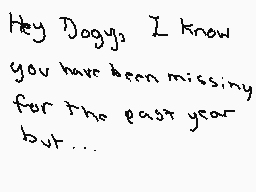 Hey Dogy, I know
you have been missing
for the past year
but...